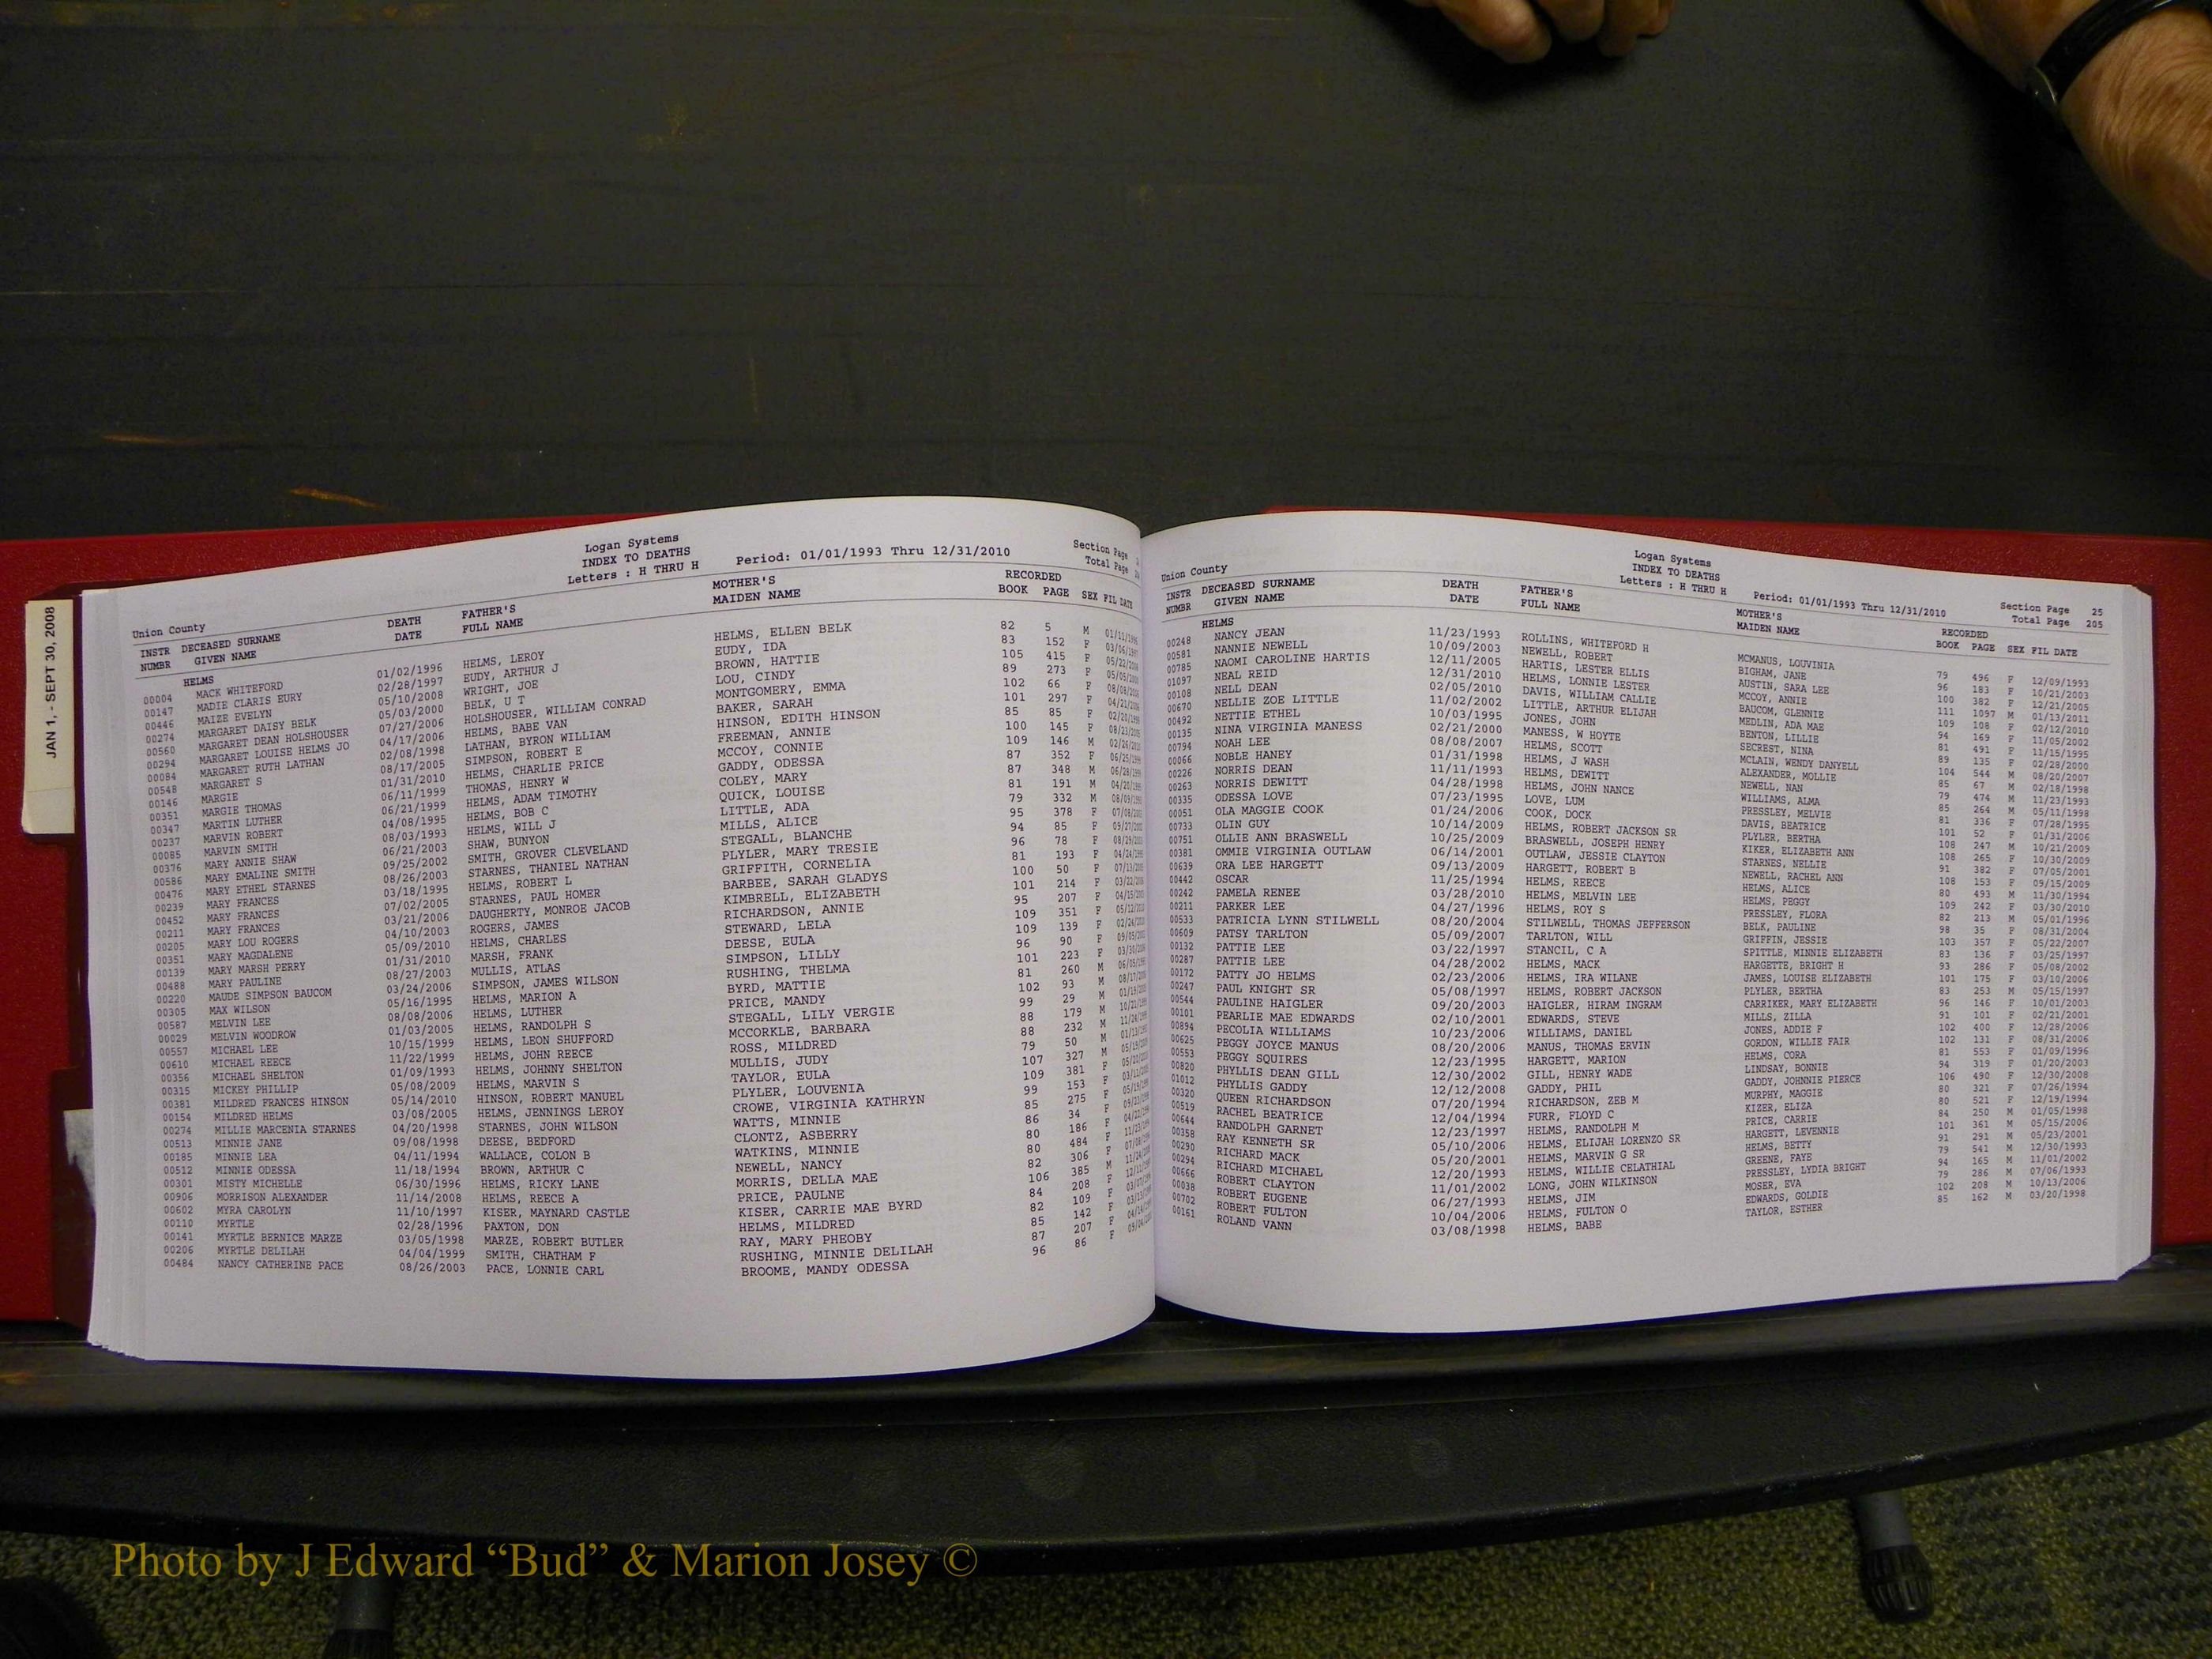 JAN 1, - SEPT 30, 2008
Logan Systems
INDEX TO DEATHS
Union County Letters : H THRU H Period: 01/01/1993 Thru 12/31/2010 Section Page Total Page
INSTR NUMBR DECEASED SURNAME GIVEN NAME DEATH DATE FATHER'S FULL NAME MOTHER'S MAIDEN NAME RECORDED BOOK PAGE SEX FIL DATE
HELMS
00004 MACK WHITEFORD 01/02/1996 HELMS, LEROY HELMS, ELLEN BELK 82 5 M
00147 MADIE CLARIS EURY 02/28/1997 EUDY, ARTHUR J EUDY, IDA 83 152 F
00446 MAIZE EVELYN 05/10/2008 WRIGHT, JOE BROWN, HATTIE 105 415 F
00274 MARGARET DAISY BELK 05/03/2000 BELK, U T LOU, CINDY 89 273 F
00560 MARGARET DEAN HOLSHOUSER 07/27/2006 HOLSHOUSER, WILLIAM CONRAD MONTGOMERY, EMMA 102 66 F
00294 MARGARET LOUISE HELMS JO 04/17/2006 HELMS, BABE VAN BAKER, SARAH 101 297 F
00084 MARGARET RUTH LATHAN 02/08/1998 LATHAN, BYRON WILLIAM HINSON, EDITH HINSON 85 85 F
00548 MARGARET S 08/17/2005 SIMPSON, ROBERT E FREEMAN, ANNIE 100 145 F
00146 MARGIE 01/31/2010 HELMS, CHARLIE PRICE MCCOY, CONNIE 109 146 M
00351 MARGIE THOMAS 06/11/1999 THOMAS, HENRY W GADDY, ODESSA 87 352 F
00347 MARTIN LUTHER 06/21/1999 HELMS, ADAM TIMOTHY COLEY, MARY 87 348 M
00237 MARVIN ROBERT 04/08/1995 HELMS, BOB C QUICK, LOUISE 81 191 M
00085 MARVIN SMITH 08/03/1993 HELMS, WILL J LITTLE, ADA 79 332 M
00376 MARY ANNIE SHAW 06/21/2003 SHAW, BUNYON MILLS, ALICE 95 378 F
00586 MARY EMALINE SMITH 09/25/2002 SMITH, GROVER CLEVELAND STEGALL, BLANCHE 94 85 F
00476 MARY ETHEL STARNES 08/26/2003 STARNES, THANIEL NATHAN PLYLER, MARY TRESIE 96 78 F
00239 MARY FRANCES 03/18/1995 HELMS, ROBERT L GRIFFITH, CORNELIA 81 193 F
00452 MARY FRANCES 07/02/2005 STARNES, PAUL HOMER BARBEE, SARAH GLADYS 100 50 F
00211 MARY FRANCES 03/21/2006 DAUGHERTY, MONROE JACOB KIMBRELL, ELIZABETH 101 214 F
00205 MARY LOU ROGERS 04/10/2003 ROGERS, JAMES RICHARDSON, ANNIE 95 207 F
00351 MARY MAGDALENE 05/09/2010 HELMS, CHARLES STEWARD, LELA 109 351 F
00139 MARY MARSH PERRY 01/31/2010 MARSH, FRANK DEESE, EULA 109 139 F
00488 MARY PAULINE 08/27/2003 MULLIS, ATLAS SIMPSON, LILLY 96 90 F
00220 MAUDE SIMPSON BAUCOM 03/24/2006 SIMPSON, JAMES WILSON RUSHING, THELMA 101 223 F
00305 MAX WILSON 05/16/1995 HELMS, MARION A BYRD, MATTIE 81 260 M
00587 MELVIN LEE 08/08/2006 HELMS, LUTHER PRICE, MANDY 102 93 M
00029 MELVIN WOODROW 01/03/2005 HELMS, RANDOLPH S STEGALL, LILY VERGIE 99 29 M
00557 MICHAEL LEE 10/15/1999 HELMS, LEON SHUFFORD MCCORKLE, BARBARA 88 179 M
00610 MICHAEL REECE 11/22/1999 HELMS, JOHN REECE ROSS, MILDRED 88 232 M
00356 MICHAEL SHELTON 01/09/1993 HELMS, JOHNNY SHELTON MULLIS, JUDY 79 50 M
00315 MICKEY PHILLIP 05/08/2009 HELMS, MARVIN S TAYLOR, EULA 107 327 M
00381 MILDRED FRANCES HINSON 05/14/2010 HINSON, ROBERT MANUEL PLYLER, LOUVENIA 109 381 F
00154 MILDRED HELMS 03/08/2005 HELMS, JENNINGS LEROY CROWE, VIRGINIA KATHRYN 99 153 F
00274 MILLIE MARCENIA STARNES 04/20/1998 STARNES, JOHN WILSON WATTS, MINNIE 85 275 F
00513 MINNIE JANE 09/08/1998 DEESE, BEDFORD CLONTZ, ASBERRY 86 34 F
00185 MINNIE LEA 04/11/1994 WALLACE, COLON B WATKINS, MINNIE 80 186 F
00512 MINNIE ODESSA 11/18/1994 BROWN, ARTHUR C NEWELL, NANCY 80 484 F
00301 MISTY MICHELLE 06/30/1996 HELMS, RICKY LANE MORRIS, DELLA MAE 82 306 F
00906 MORRISON ALEXANDER 11/14/2008 HELMS, REECE A PRICE, PAULNE 106 385 M
00602 MYRA CAROLYN 11/10/1997 KISER, MAYNARD CASTLE KISER, CARRIE MAE BYRD 84 208 F
00110 MYRTLE 02/28/1996 PAXTON, DON HELMS, MILDRED 82 109 F
00141 MYRTLE BERNICE MARZE 03/05/1998 MARZE, ROBERT BUTLER RAY, MARY PHEOBY 85 142 F
00206 MYRTLE DELILAH 04/04/1999 SMITH, CHATHAM F RUSHING, MINNIE DELILAH 87 207 F
00484 NANCY CATHERINE PACE 08/26/2003 PACE, LONNIE CARL BROOME, MANDY ODESSA 96 86 F
Logan Systems
INDEX TO DEATHS
Union County Letters : H THRU H Period: 01/01/1993 Thru 12/31/2010 Section Page 25 Total Page 205
INSTR NUMBR DECEASED SURNAME GIVEN NAME DEATH DATE FATHER'S FULL NAME MOTHER'S MAIDEN NAME RECORDED BOOK PAGE SEX FIL DATE
HELMS
00248 NANCY JEAN 11/23/1993 ROLLINS, WHITEFORD H MCMANUS, LOUVINIA 79 496 F 12/09/1993
00581 NANNIE NEWELL 10/09/2003 NEWELL, ROBERT BIGHAM, JANE 96 183 F 10/21/2003
00785 NAOMI CAROLINE HARTIS 12/11/2005 HARTIS, LESTER ELLIS AUSTIN, SARA LEE 100 382 F 12/21/2005
01097 NEAL REID 12/31/2010 HELMS, LONNIE LESTER MCCOY, ANNIE 111 1097 M 01/13/2011
00108 NELL DEAN 02/05/2010 DAVIS, WILLIAM CALLIE BAUCOM, GLENNIE 109 108 F 02/12/2010
00670 NELLIE ZOE LITTLE 11/02/2002 LITTLE, ARTHUR ELIJAH MEDLIN, ADA MAE 94 169 F 11/05/2002
00492 NETTIE ETHEL 10/03/1995 JONES, JOHN BENTON, LILLIE 81 491 F 11/15/1995
00135 NINA VIRGINIA MANESS 02/21/2000 MANESS, W HOYTE SECREST, NINA 89 135 F 02/28/2000
00794 NOAH LEE 08/08/2007 HELMS, SCOTT MCLAIN, WENDY DANYELL 104 544 M 08/20/2007
00066 NOBLE HANEY 01/31/1998 HELMS, J WASH ALEXANDER, MOLLIE 85 67 M 02/18/1998
00226 NORRIS DEAN 11/11/1993 HELMS, DEWITT NEWELL, NAN 79 474 M 11/23/1993
00263 NORRIS DEWITT 04/28/1998 HELMS, JOHN NANCE WILLIAMS, ALMA 85 264 M 05/11/1998
00335 ODESSA LOVE 07/23/1995 LOVE, LUM PRESSLEY, MELVIE 81 336 F 07/28/1995
00051 OLA MAGGIE COOK 01/24/2006 COOK, DOCK DAVIS, BEATRICE 101 52 F 01/31/2006
00733 OLIN GUY 10/14/2009 HELMS, ROBERT JACKSON SR PLYLER, BERTHA 108 247 M 10/21/2009
00751 OLLIE ANN BRASWELL 10/25/2009 BRASWELL, JOSEPH HENRY KIKER, ELIZABETH ANN 108 265 F 10/30/2009
00381 OMMIE VIRGINIA OUTLAW 06/14/2001 OUTLAW, JESSIE CLAYTON STARNES, NELLIE 91 382 F 07/05/2001
00639 ORA LEE HARGETT 09/13/2009 HARGETT, ROBERT B NEWELL, RACHEL ANN 108 153 F 09/15/2009
00442 OSCAR 11/25/1994 HELMS, REECE HELMS, ALICE 80 493 M 11/30/1994
00242 PAMELA RENEE 03/28/2010 HELMS, MELVIN LEE HELMS, PEGGY 109 242 F 03/30/2010
00211 PARKER LEE 04/27/1996 HELMS, ROY S PRESSLEY, FLORA 82 213 M 05/01/1996
00533 PATRICIA LYNN STILWELL 08/20/2004 STILWELL, THOMAS JEFFERSON BELK, PAULINE 98 35 F 08/31/2004
00609 PATSY TARLTON 05/09/2007 TARLTON, WILL GRIFFIN, JESSIE 103 357 F 05/22/2007
00132 PATTIE LEE 03/22/1997 STANCIL, C A SPITTLE, MINNIE ELIZABETH 83 136 F 03/25/1997
00287 PATTIE LEE 04/28/2002 HELMS, MACK HARGETTE, BRIGHT H 93 286 F 05/08/2002
00172 PATTY JO HELMS 02/23/2006 HELMS, IRA WILANE JAMES, LOUISE ELIZABETH 101 175 F 03/10/2006
00247 PAUL KNIGHT SR 05/08/1997 HELMS, ROBERT JACKSON PLYLER, BERTHA 83 253 M 05/15/1997
00544 PAULINE HAIGLER 09/20/2003 HAIGLER, HIRAM INGRAM CARRIKER, MARY ELIZABETH 96 146 F 10/01/2003
00101 PEARLIE MAE EDWARDS 02/10/2001 EDWARDS, STEVE MILLS, ZILLA 91 101 F 02/21/2001
00894 PECOLIA WILLIAMS 10/23/2006 WILLIAMS, DANIEL JONES, ADDIE F 102 400 F 12/28/2006
00625 PEGGY JOYCE MANUS 08/20/2006 MANUS, THOMAS ERVIN GORDON, WILLIE FAIR 102 131 F 08/31/2006
00553 PEGGY SQUIRES 12/23/1995 HARGETT, MARION HELMS, CORA 81 553 F 01/09/1996
00820 PHYLLIS DEAN GILL 12/30/2002 GILL, HENRY WADE LINDSAY, BONNIE 94 319 F 01/20/2003
01012 PHYLLIS GADDY 12/12/2008 GADDY, PHIL GADDY, JOHNNIE PIERCE 106 490 F 12/30/2008
00320 QUEEN RICHARDSON 07/20/1994 RICHARDSON, ZEB M MURPHY, MAGGIE 80 321 F 07/26/1994
00519 RACHEL BEATRICE 12/04/1994 FURR, FLOYD C KIZER, ELIZA 80 521 F 12/19/1994
00644 RANDOLPH GARNET 12/23/1997 HELMS, RANDOLPH M PRICE, CARRIE 84 250 M 01/05/1998
00358 RAY KENNETH SR 05/10/2006 HELMS, ELIJAH LORENZO SR HARGETT, LEVENNIE 101 361 M 05/15/2006
00290 RICHARD MACK 05/20/2001 HELMS, MARVIN G SR HELMS, BETTY 91 291 M 05/23/2001
00294 RICHARD MICHAEL 12/20/1993 HELMS, WILLIE CELATHIAL GREENE, FAYE 79 541 M 12/30/1993
00666 ROBERT CLAYTON 11/01/2002 LONG, JOHN WILKINSON PRESSLEY, LYDIA BRIGHT 94 165 M 11/01/2002
00038 ROBERT EUGENE 06/27/1993 HELMS, JIM MOSER, EVA 79 286 M 07/06/1993
00702 ROBERT FULTON 10/04/2006 HELMS, FULTON O EDWARDS, GOLDIE 102 208 M 10/13/2006
00161 ROLAND VANN 03/08/1998 HELMS, BABE TAYLOR, ESTHER 85 162 M 03/20/1998
Photo by J Edward “Bud” & Marion Josey ©